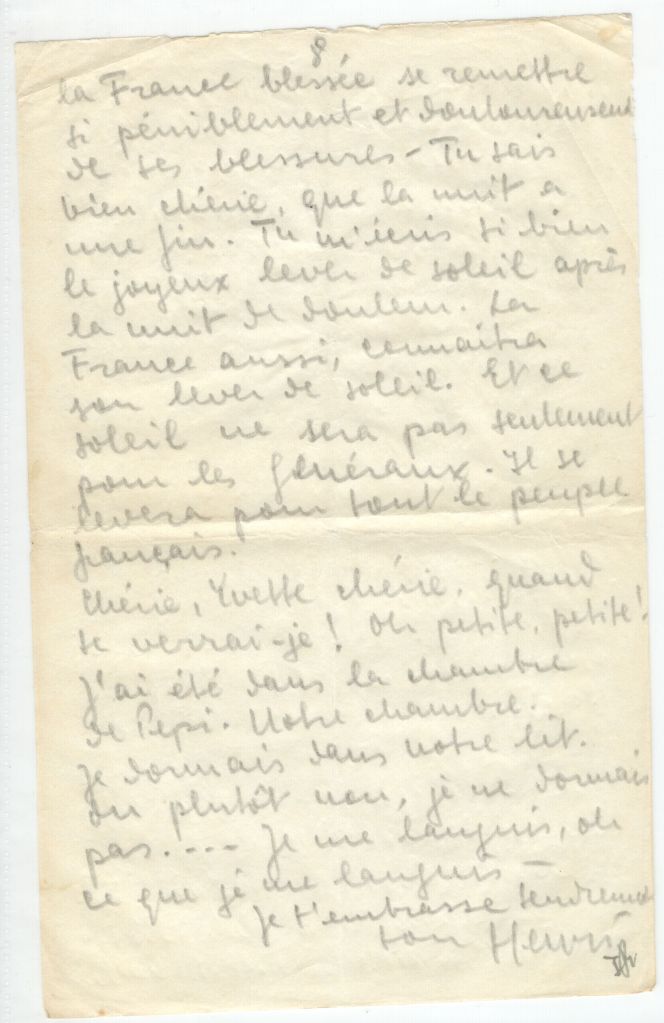 8
la France blessée se remettre
si péniblement et douloureusement
de ses blessures - Tu sais
bien chérie, que la nuit a
une fin. Tu m'écris si bien
le joyeux lever de soleil après
la nuit de douleur. La
France aussi, connaitra
son lever de soleil. Et ce
soleil ne sera pas seulement
pour les Généraux. Il se
levera pour tout le peuple
français.
Chérie, Yvette chérie, quand
te verrai-je! Oh petite, petite!
J'ai été dans la chambre
de Pepi. Notre chambre.
Je dormais dans notre lit.
Ou plutôt non, je ne dormais
pas.... Je me languis, oh
ce que je me languis -
Je t'embrasse tendrement
ton Henri